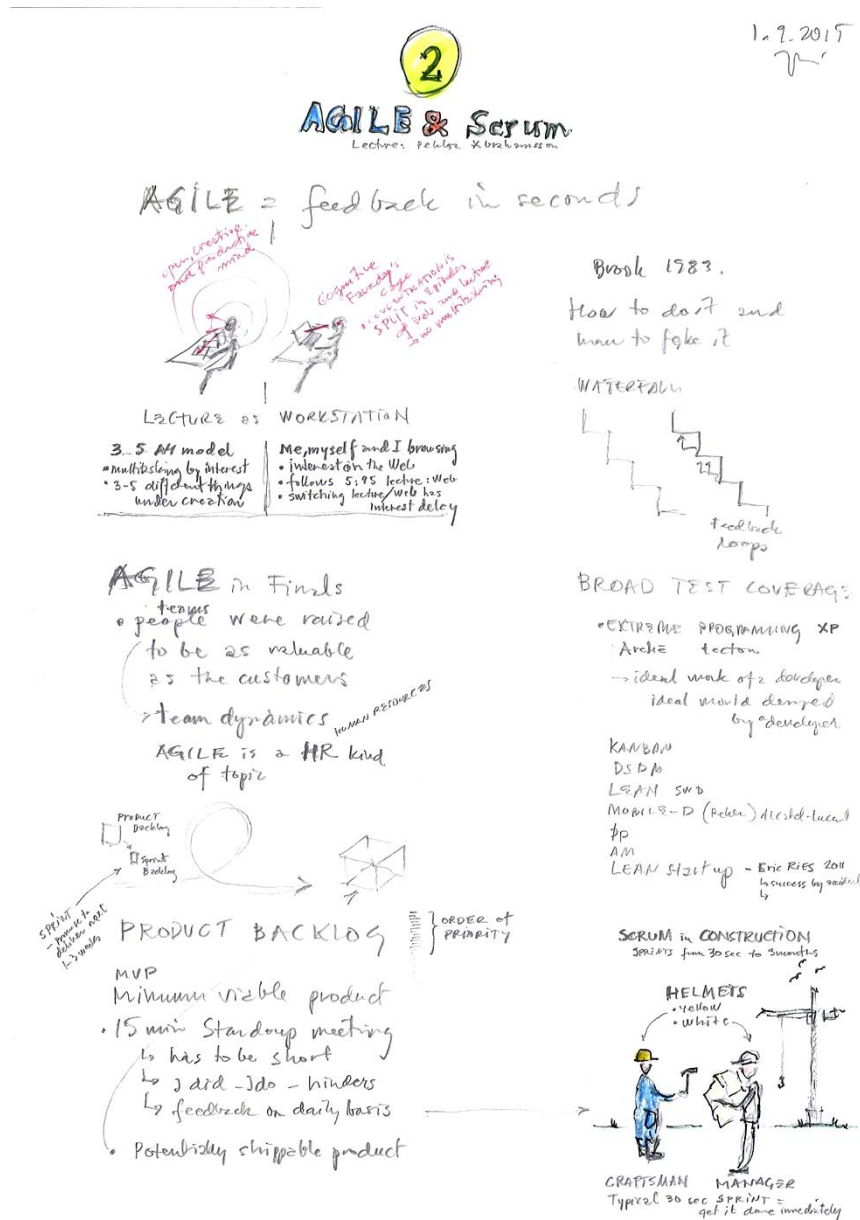 1.9.2015
2
AGILE & Scrum
Lecture: Pekka Abrahamsson
AGILE = feedback in seconds
open, creative
and productive
mind
Cognitive
Faraday's
cage
CONCENTRATION IS
SPLIT in Episodes
of Web and lecture
→ no multitasking
LECTURE as WORKSTATION
3...5 A4 model
• multitasking by interest
• 3-5 different things
under creation
Me, myself and I browsing
• interest on the Web
• follows 5:95 lecture:Web
• switching lecture/Web has
interest delay
Brook 1983.
How to do it and
how to fake it
WATERFALL
feedback
loops
AGILE in Finals
teams
• people were raised
to be as valuable
as the customers
→ team dynamics
HUMAN RESOURCES
AGILE is a HR kind
of topic
BROAD TEST COVERAGE
• EXTREME PROGRAMMING XP
Archē tecton
→ ideal work of a developer
ideal world
by a developer
KANBAN
DSDM
LEAN SWD
MOBILE-D (Pekka)
PP
AM
LEAN Startup - Eric RIES 2011
↳ success by
↳
PRODUCT
Backlog
Sprint
Backlog
SPRINT
- promise to
deliver next
1-3 weeks
PRODUCT BACKLOG
ORDER OF
PRIORITY
MVP
Minimum viable product
• 15 min Standup meeting
↳ has to be short
↳ I did - I do - hinders
↳ feedback on daily basis
• Potentially shippable product
SCRUM in CONSTRUCTION
SPRINTS from 30 sec to 3 months
HELMETS
• yellow
• white
CRAFTSMAN MANAGER
Typical 30 sec SPRINT =
get it done immediately